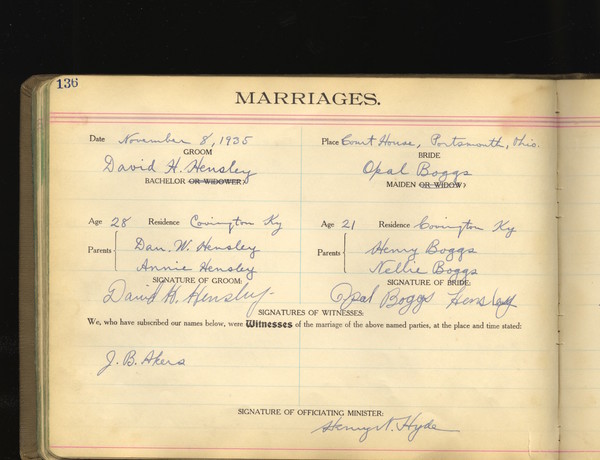 136
MARRIAGES.
Date November 8, 1935 Place Court House, Portsmouth, Ohio.
GROOM BRIDE
David H. Hensley Opal Boggs
BACHELOR OR WIDOWER? MAIDEN OR WIDOW?
Age 28 Residence Covington Ky Age 21 Residence Covington Ky
Parents { Dan. W. Hensley Parents { Henry Boggs
Annie Hensley Nellie Boggs
SIGNATURE OF GROOM: SIGNATURE OF BRIDE:
David H. Hensley. Opal Boggs Hensley
SIGNATURES OF WITNESSES:
We, who have subscribed our names below, were Witnesses of the marriage of the above named parties, at the place and time stated:
J. B. Akers
SIGNATURE OF OFFICIATING MINISTER:
Henry N. Hyde